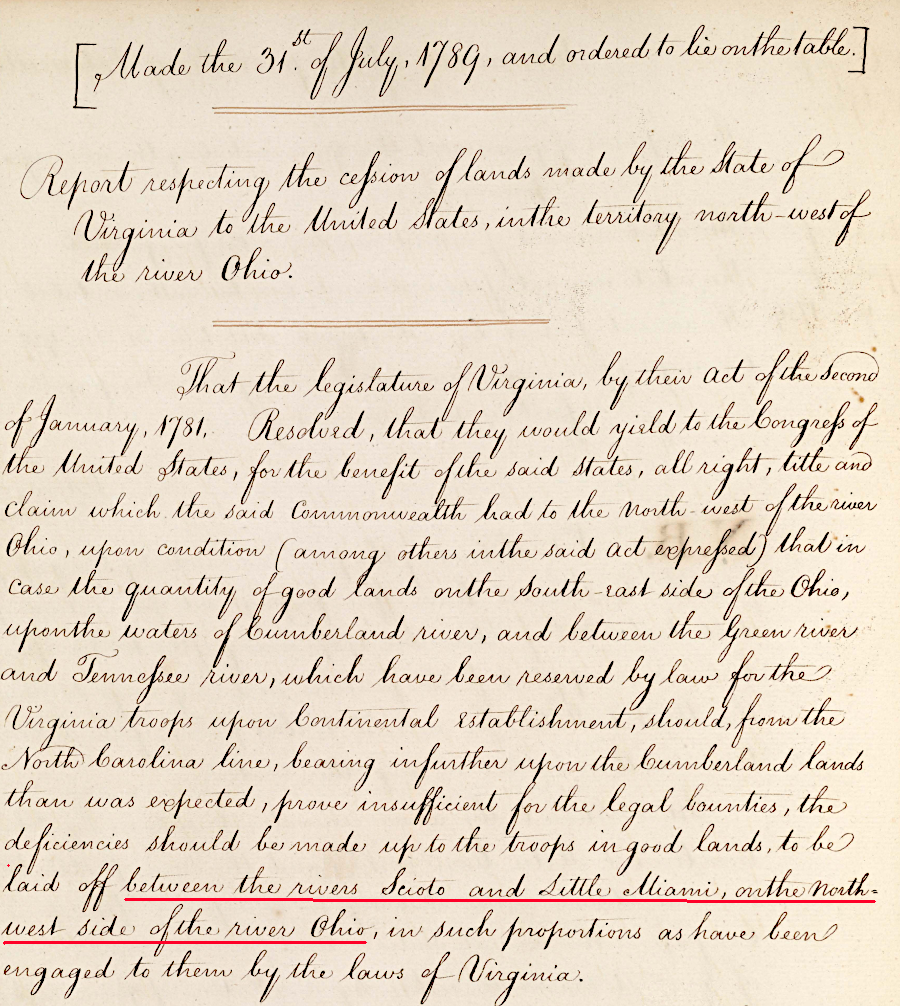 [Made the 31.st of July, 1789, and ordered to lie on the table.]
Report respecting the cession of lands made by the State of
Virginia to the United States, in the territory north-west of
the river Ohio.
That the legislature of Virginia, by their act of the Second
of January, 1781. Resolved, that they would yield to the Congress of
the United States, for the benefit of the said states, all right, title and
claim which the said Commonwealth had to the north-west of the river
Ohio, upon condition (among others in the said act expressed) that in
case the quantity of good lands on the South-East side of the Ohio,
upon the waters of Cumberland river, and between the Green river
and Tennessee river, which have been reserved by law for the
Virginia troops upon Continental Establishment, should, from the
North Carolina line, bearing in further upon the Cumberland lands
than was expected, prove insufficient for the legal bounties, the
deficiencies should be made up to the troops in good lands, to be
laid off between the rivers Scioto and Little Miami, on the North=
west side of the river Ohio, in such proportions as have been
engaged to them by the laws of Virginia.